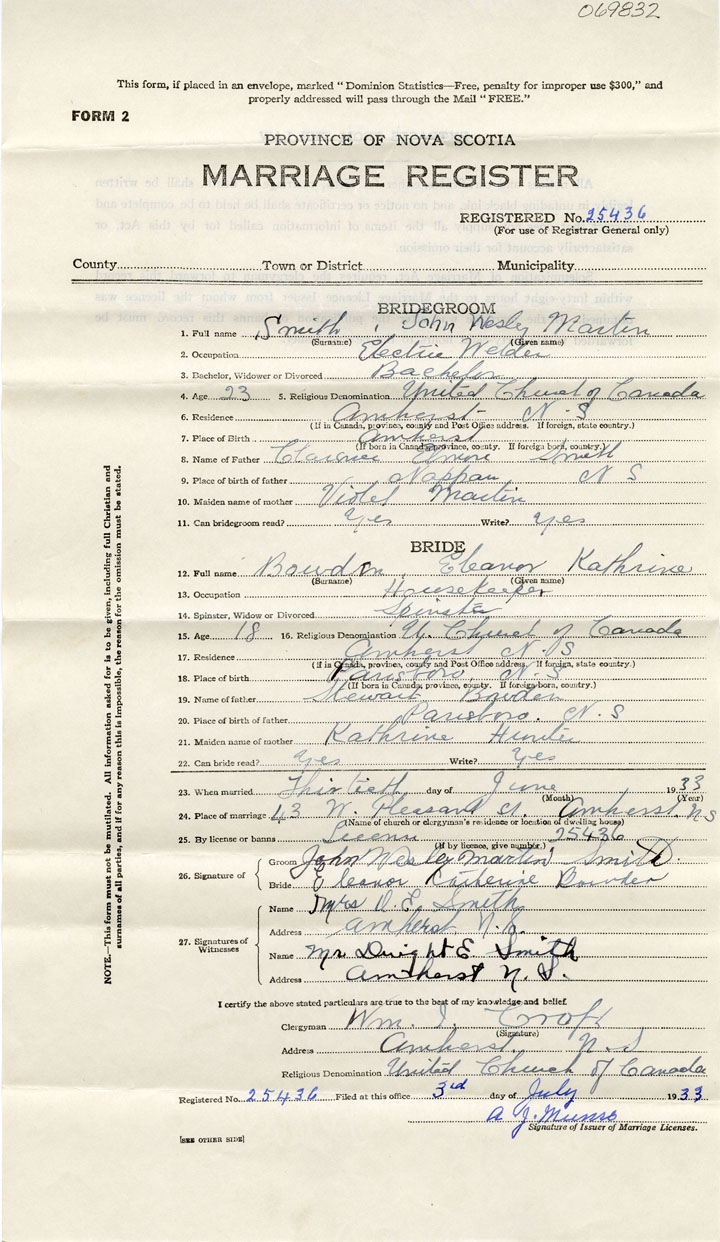 069832
This form, if placed in an envelope, marked "Dominion Statistics—Free, penalty for improper use $300," and
properly addressed will pass through the Mail "FREE."
FORM 2
PROVINCE OF NOVA SCOTIA
MARRIAGE REGISTER
REGISTERED No. 25436
(For use of Registrar General only)
County Town or District Municipality
BRIDEGROOM
1. Full name Smith, John Wesley Martin
(Surname) (Given name)
2. Occupation Electric Welder
3. Bachelor, Widower or Divorced Bachelor
4. Age 23 5. Religious Denomination United Church of Canada
6. Residence Amherst N.S
(If in Canada, province, county and Post Office address. If foreign, state country.)
7. Place of Birth Amherst
(If born in Canada, province, county. If foreign born, country.)
8. Name of Father Clarence Smith
9. Place of birth of father Nappan N S
10. Maiden name of mother Violet Martin
11. Can bridegroom read? Yes Write? Yes
BRIDE
12. Full name Bowden, Eleanor Kathrine
(Surname) (Given name)
13. Occupation Housekeeper
14. Spinster, Widow or Divorced Spinster
15. Age 18 16. Religious Denomination U. Church of Canada
17. Residence Amherst N.S
(If in Canada, province, county and Post Office address. If foreign, state country.)
18. Place of birth Parrsboro, N.S
(If born in Canada, province, county. If foreign born, country.)
19. Name of father Stewart Bowden
20. Place of birth of father Parrsboro. N.S
21. Maiden name of mother Kathrine Hunter
22. Can bride read? Yes Write? Yes
23. When married Thirtieth day of June 1933
(Month) (Year)
24. Place of marriage 43 W. Pleasant St. Amherst. N S
(Name of church or clergyman's residence or location of dwelling house)
25. By license or banns License 25436
(If by licence, give number.)
26. Signature of
Groom John Wesley Martin Smith.
Bride Eleanor Katherine Bowden
27. Signatures of Witnesses
Name Mrs D. E. Smith
Address Amherst N.S.
Name Mr Dwight E Smith
Address Amherst N.S.
I certify the above stated particulars are true to the best of my knowledge and belief.
Clergyman Wm. I. Croft
(Signature)
Address Amherst, N.S
Religious Denomination United Church of Canada
Registered No. 25436 Filed at this office 3rd day of July 1933
A. J. Munro
Signature of Issuer of Marriage Licenses.
[SEE OTHER SIDE]
NOTE.—This form must not be mutilated. All information asked for is to be given, including full Christian and
surnames of all parties, and if for any reason this is impossible, the reason for the omission must be stated.